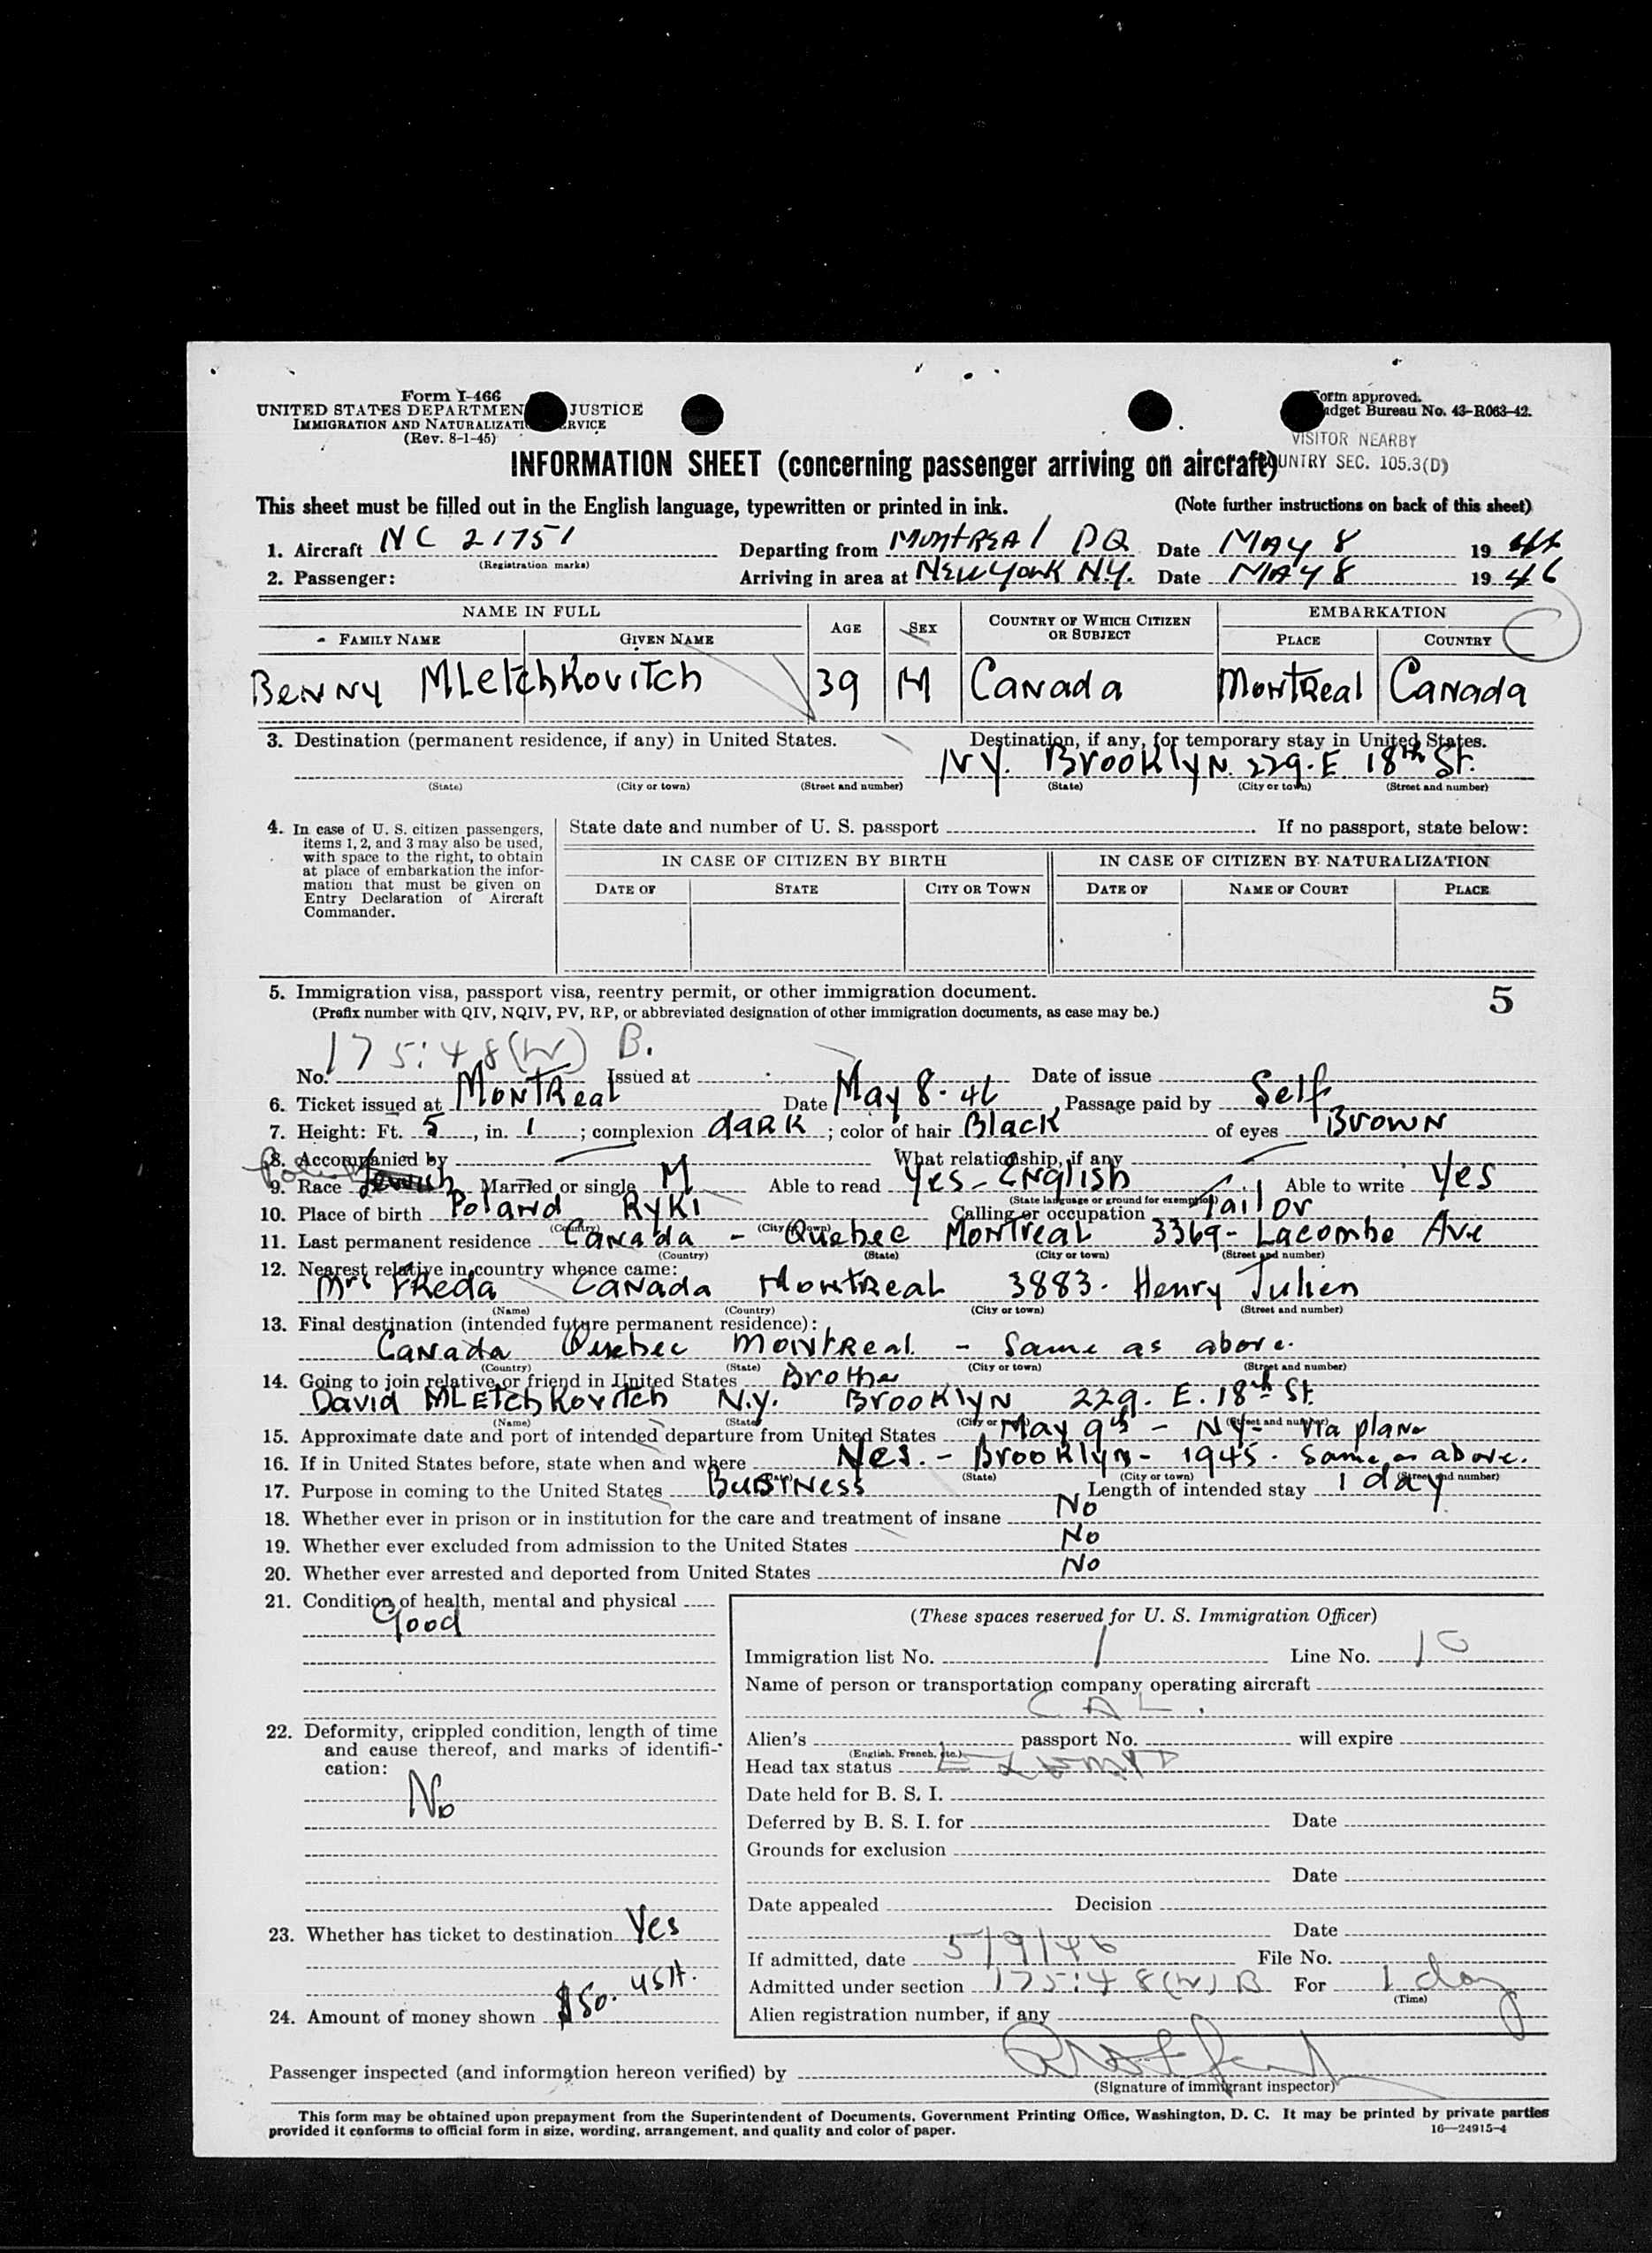 Form I-466
UNITED STATES DEPARTMEN JUSTICE
IMMIGRATION AND NATURALIZATI ERVICE
(Rev. 8-1-45)
orm approved.
dget Bureau No. 43-R063-42.
VISITOR NEARBY
UNTRY SEC. 105.3(D)
INFORMATION SHEET (concerning passenger arriving on aircraft)
This sheet must be filled out in the English language, typewritten or printed in ink. (Note further instructions on back of this sheet)
1. Aircraft NC 21751 Departing from MONTREAL PQ Date MAY 8 19 46
(Registration marks)
2. Passenger: Arriving in area at NEW YORK N.Y. Date MAY 8 19 46
NAME IN FULL AGE SEX COUNTRY OF WHICH CITIZEN OR SUBJECT EMBARKATION
FAMILY NAME GIVEN NAME PLACE COUNTRY
Benny MLetchkovitch 39 M Canada Montreal Canada
3. Destination (permanent residence, if any) in United States. Destination, if any, for temporary stay in United States.
N.Y. Brooklyn 229. E 18th St.
(State) (City or town) (Street and number) (State) (City or town) (Street and number)
4. In case of U. S. citizen passengers, items 1, 2, and 3 may also be used, with space to the right, to obtain at place of embarkation the information that must be given on Entry Declaration of Aircraft Commander.
State date and number of U. S. passport If no passport, state below:
IN CASE OF CITIZEN BY BIRTH IN CASE OF CITIZEN BY NATURALIZATION
DATE OF STATE CITY OR TOWN DATE OF NAME OF COURT PLACE
5. Immigration visa, passport visa, reentry permit, or other immigration document. 5
(Prefix number with QIV, NQIV, PV, RP, or abbreviated designation of other immigration documents, as case may be.)
No. 175:48(W) B. Issued at Date of issue
6. Ticket issued at Montreal Date May 8. 46 Passage paid by Self
7. Height: Ft. 5, in. 1; complexion dark; color of hair Black of eyes Brown
8. Accompanied by What relationship, if any
9. Race Jewish Married or single M Able to read Yes - English Able to write Yes
(State language or ground for exemption)
10. Place of birth Poland Ryki Calling or occupation Tailor
(Country) (City or town)
11. Last permanent residence Canada - Quebec Montreal 3369- Lacombe Ave
(Country) (State) (City or town) (Street and number)
12. Nearest relative in country whence came:
Mrs Freda Canada Montreal 3883. Henry Julien
(Name) (Country) (City or town) (Street and number)
13. Final destination (intended future permanent residence):
Canada Quebec Montreal - Same as above.
(Country) (State) (City or town) (Street and number)
14. Going to join relative or friend in United States Brother
David MLetchkovitch N.Y. Brooklyn 229. E. 18th St.
(Name) (State) (City or town) (Street and number)
15. Approximate date and port of intended departure from United States May 9th - NY- via plane
16. If in United States before, state when and where Yes. - Brooklyn - 1945. Same as above.
(Date) (State) (City or town) (Street and number)
17. Purpose in coming to the United States Business Length of intended stay 1 day
18. Whether ever in prison or in institution for the care and treatment of insane No
19. Whether ever excluded from admission to the United States No
20. Whether ever arrested and deported from United States No
21. Condition of health, mental and physical
Good
(These spaces reserved for U. S. Immigration Officer)
Immigration list No. 1 Line No. 10
Name of person or transportation company operating aircraft
CAL.
22. Deformity, crippled condition, length of time and cause thereof, and marks of identification:
No
Alien's passport No. will expire
(English, French, etc.)
Head tax status EXEMPT
Date held for B. S. I.
Deferred by B. S. I. for Date
Grounds for exclusion
Date
Date appealed Decision
Date
23. Whether has ticket to destination Yes
If admitted, date 5/9/46 File No.
Admitted under section 175:48(W) B For 1 day
(Time)
24. Amount of money shown $50. USA.
Alien registration number, if any
Passenger inspected (and information hereon verified) by
(Signature of immigrant inspector)
This form may be obtained upon prepayment from the Superintendent of Documents, Government Printing Office, Washington, D. C. It may be printed by private parties
provided it conforms to official form in size, wording, arrangement, and quality and color of paper. 16—24915-4